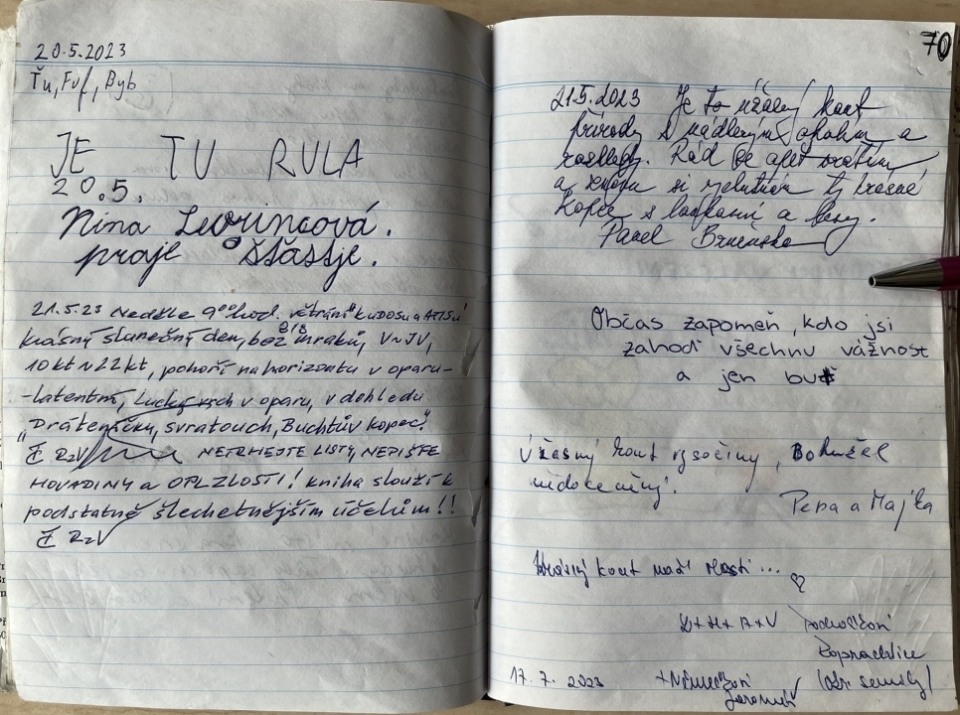 20.5.2023
Ťu, Fuf, Byb
JE TU RULA
20.5.
Nina Levrincová.
praje šťastje.
21.5.23 Neděle 9⁰⁰hod. větrání "KUDOSU a ATISU"
krásný slunečný den, bez mraků, V~JV,
10kt~22kt, pohoří na horizontu v oparu-
-latentní, Lucký vrch v oparu, v dohledu
"Drátenička, Svratouch, Buchtův kopec."
NETRHEJTE LISTY, NEPIŠTE
HOVADINY a OPLZLOSTI! kniha slouží k
podstatně šlechetnějším účelům!!
70
21.5.2023 Je to úžasný kout
přírody s nádhernými a
rozhledy. Rád se opět vrátím
a znovu si ty krásné
kopce s loukami a lesy.
Pavel
Občas zapomeň, kdo jsi
zahoď všechnu vážnost
a jen buď
Úžasný kout vysočiny, Bohužel
nedoceněný!
Pepa a Majka
Krásný kout naší vlasti...
D+H+A+V
17. 7. 2023 +Němečkovi
Jaromír